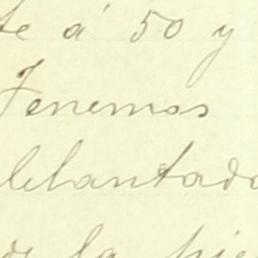 te á 50 y
Tenemos
delantado
de la pie